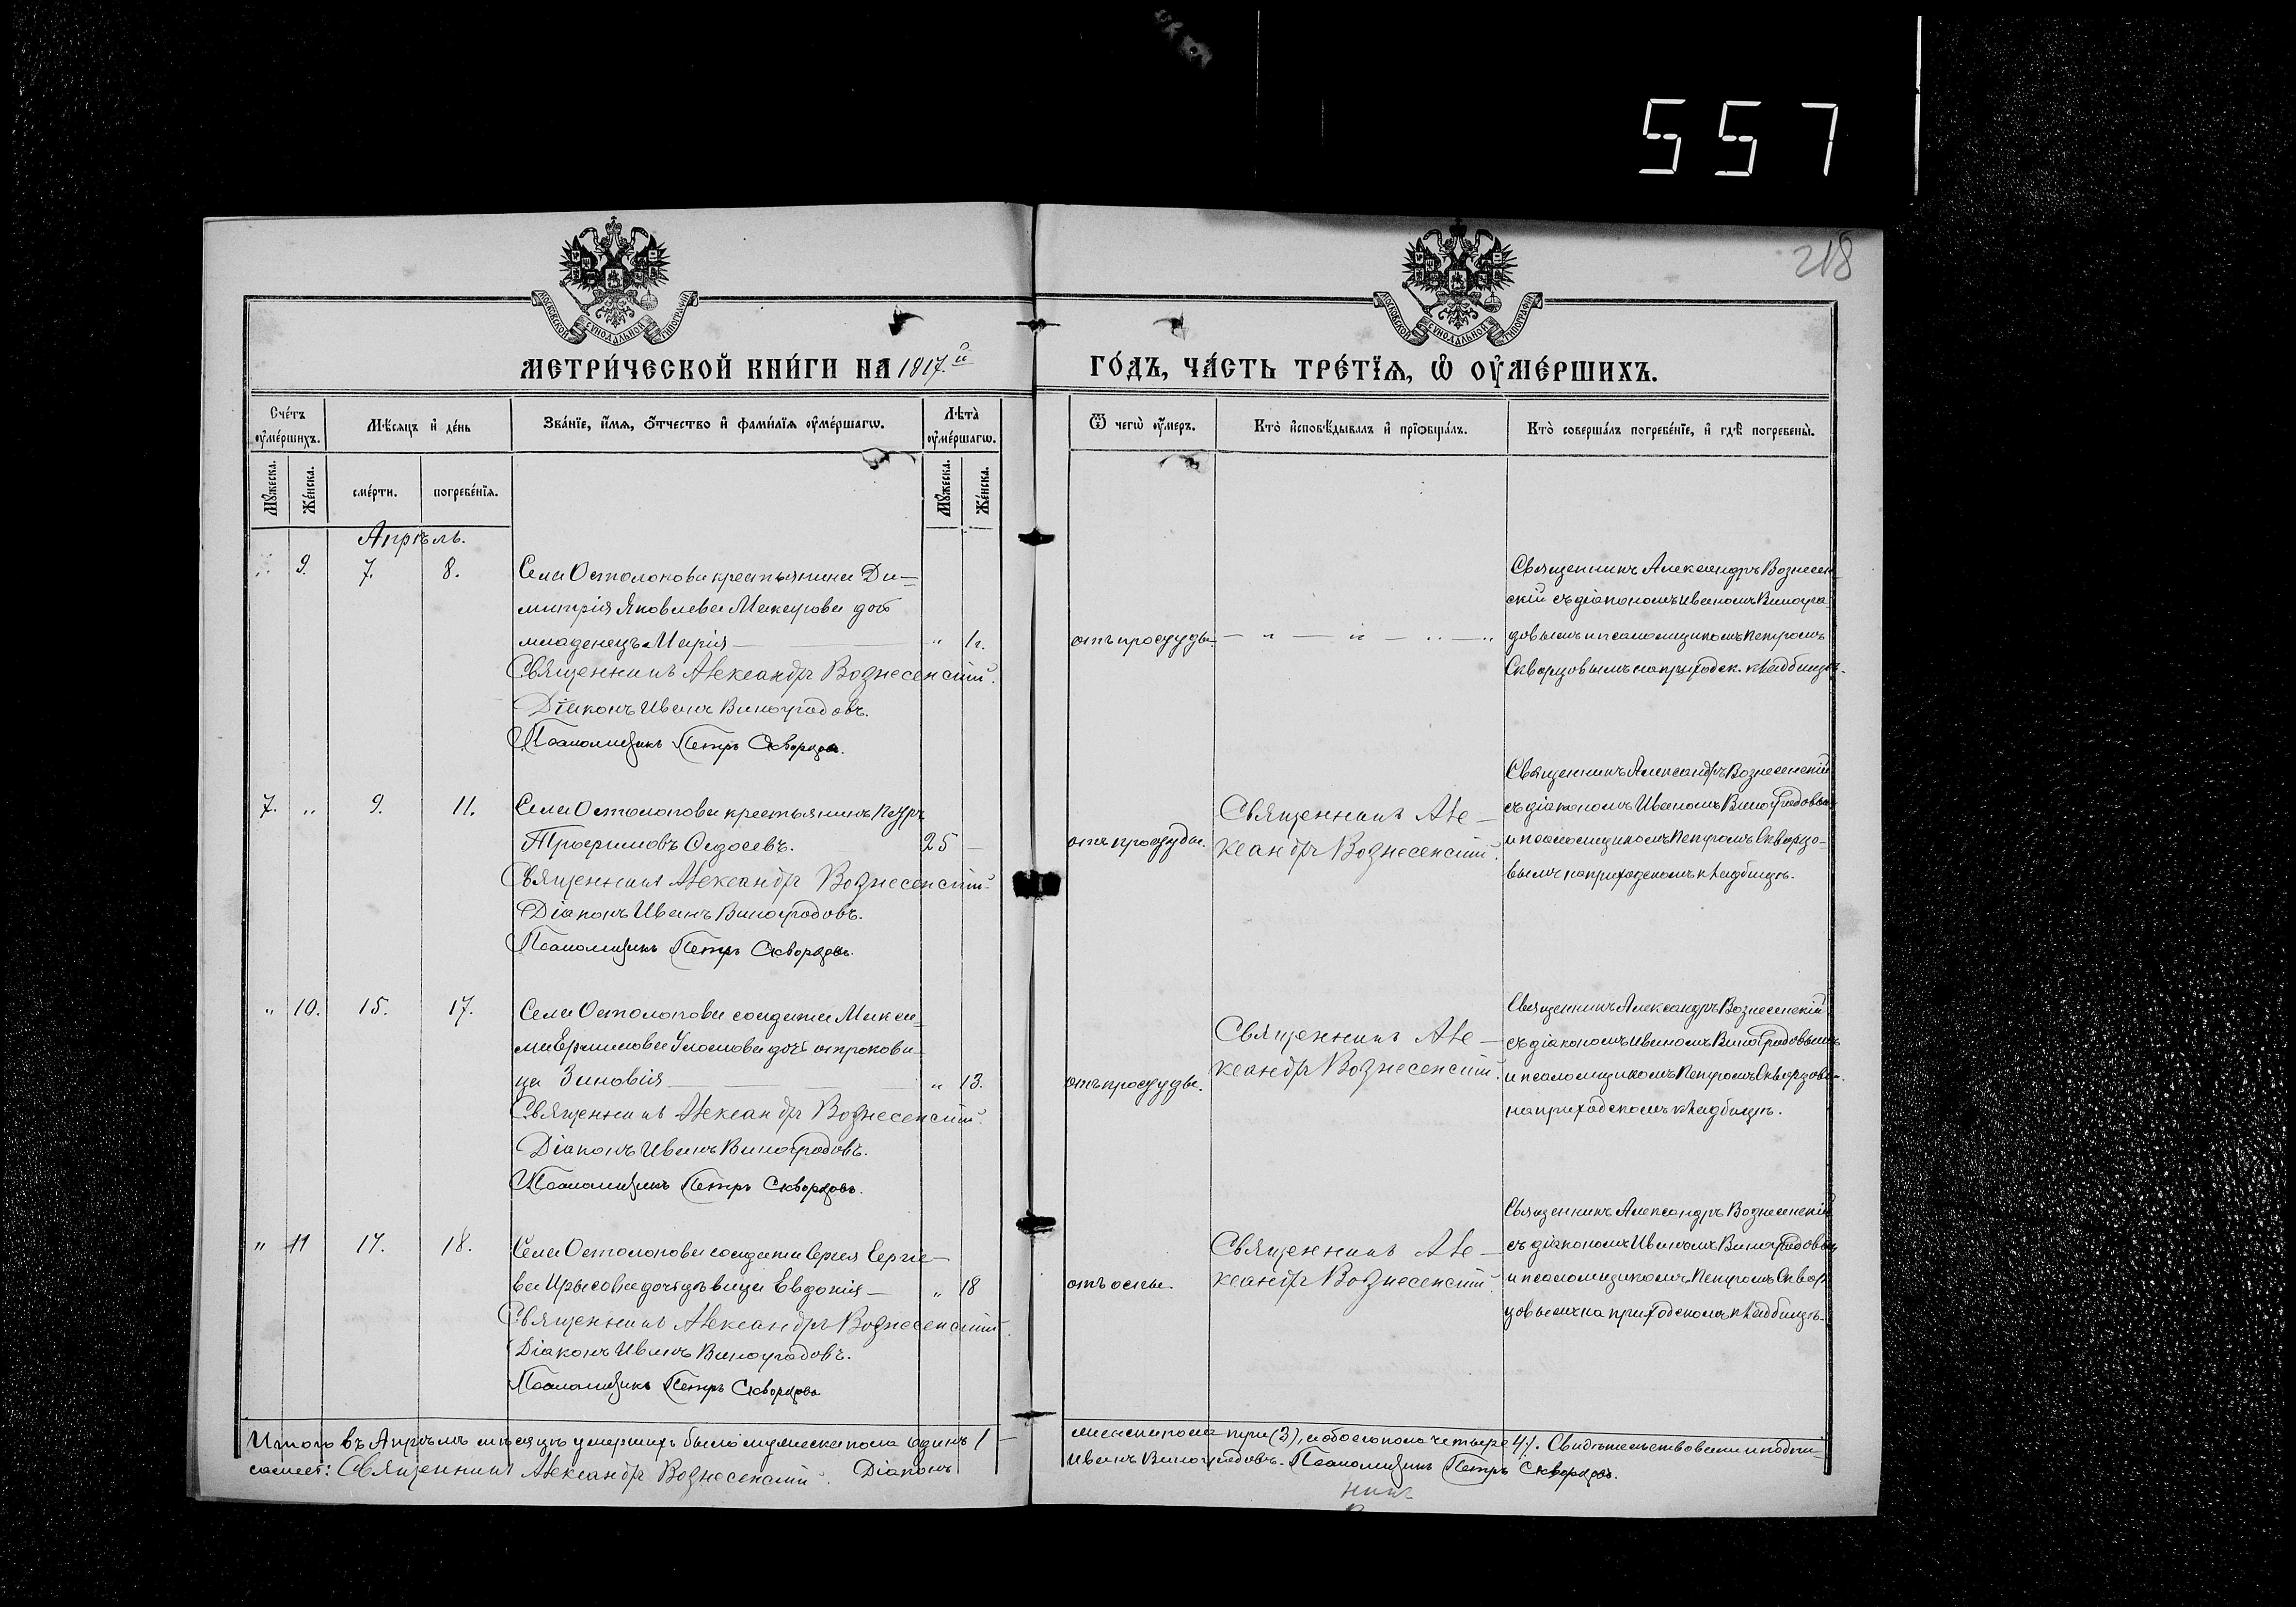 557
218
МОСКОВСКОЙ СѴНОДАЛЬНОЙ ТИПОГРАФІИ
МОСКОВСКОЙ СѴНОДАЛЬНОЙ ТИПОГРАФІИ
МЕТРИ́ЧЕСКОЙ КНИ́ГИ НА 1917.й ГО́ДЪ, ЧА́СТЬ ТРЕ́ТЇѦ, Ѡ҆ ОУ҆МЕ́РШИХЪ.
Сче́тъ оу҆ме́ршихъ.
Мѣ́сѧцъ и҆ де́нь
Зва́нїе, и҆́мѧ, ѻ҆́тчество и҆ фамѝлїѧ оу҆ме́ршагѡ.
Лѣ́та оу҆ме́ршагѡ.
Ѿ чегѡ̀ оу҆́меръ.
Кто̀ и҆сповѣ́дывалъ и҆ прїѡбща́лъ.
Кто̀ соверша́лъ погребе́нїе, и҆ гдѣ̀ погребены̀.
Мꙋ́жеска.
Же́нска.
сме́рти.
погребе́нїѧ.
Мꙋ́жеска.
Же́нска.
Апрѣль.
„ 9. 7. 8. Села Остолопова крестьянина Ди-
митрія Яковлева Макарова дочь
младенецъ Марія — „ 1г. отъ простуды. — „ — „ — „ — „
Священникъ Александръ Вознесенскій.
Діаконъ Иванъ Виноградовъ.
Псаломщикъ Петръ Скворцовъ.
Священникъ Александръ Вознесен-
скій съ діакономъ Иваномъ Виногра-
довымъ и псаломщикомъ Петромъ
Скворцовымъ на приходск. кладбищѣ.
7. „ 9. 11. Села Остолопова крестьянинъ Петръ
Трофимовъ Ѳедосѣевъ. 25 — отъ простуды.
Священникъ Александръ Вознесенскій.
Діаконъ Иванъ Виноградовъ.
Псаломщикъ Петръ Скворцовъ.
Священникъ Але-
ксандръ Вознесенскій.
Священникъ Александръ Вознесенскій
съ діакономъ Иваномъ Виноградовымъ
и псаломщикомъ Петромъ Скворцо-
вымъ на приходскомъ кладбищѣ.
„ 10. 15. 17. Села Остолопова солдата Макси-
ма дочь отроковица
Зиновія — „ 13. отъ простуды.
Священникъ Александръ Вознесенскій.
Діаконъ Иванъ Виноградовъ.
Псаломщикъ Петръ Скворцовъ.
Священникъ Але-
ксандръ Вознесенскій.
Священникъ Александръ Вознесенскій
съ діакономъ Иваномъ Виноградовымъ
и псаломщикомъ Петромъ Скворцовы.
на приходскомъ кладбищѣ.
„ 11 17. 18. Села Остолопова солдата Сергія Сергѣе-
ва дочь дѣвица Евдокія — „ 18 отъ оспы.
Священникъ Александръ Вознесенскій.
Діаконъ Иванъ Виноградовъ.
Псаломщикъ Петръ Скворцовъ
Священникъ Але-
ксандръ Вознесенскій.
Священникъ Александръ Вознесенскій
съ діакономъ Иваномъ Виноградовым
и псаломщикомъ Петромъ Сквор-
цовымъ на приходскомъ кладбищѣ.
Итого въ Апрѣлѣ мѣсяцѣ умершихъ было мужеска пола одинъ 1 — женска пола три (3), а обоего пола четыре 4). Свидѣтельствовали и подпи-
сались: Священникъ Александръ Вознесенскій. Діаконъ Иванъ Виноградовъ. Псаломщикъ Петръ Скворцовъ.